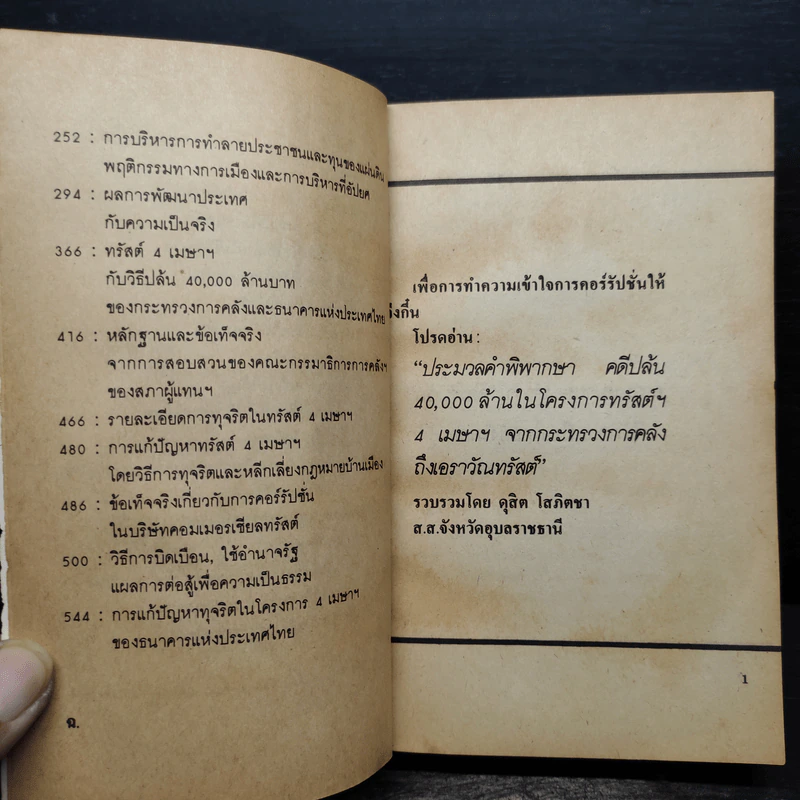 252 : การบริหารการทำลายประชาชนและทุนของแผ่นดิน
พฤติกรรมทางการเมืองและการบริหารที่อัปยศ
294 : ผลการพัฒนาประเทศ
กับความเป็นจริง
366 : ทรัสต์ 4 เมษาฯ
กับวิธีปล้น 40,000 ล้านบาท
ของกระทรวงการคลังและธนาคารแห่งประเทศไทย
416 : หลักฐานและข้อเท็จจริง
จากการสอบสวนของคณะกรรมาธิการการคลังฯ
ของสภาผู้แทนฯ
466 : รายละเอียดการทุจริตในทรัสต์ 4 เมษาฯ
480 : การแก้ปัญหาทรัสต์ 4 เมษาฯ
โดยวิธีการทุจริตและหลีกเลี่ยงกฎหมายบ้านเมือง
486 : ข้อเท็จจริงเกี่ยวกับการคอร์รัปชั่น
ในบริษัทคอมเมอรเชียลทรัสต์
500 : วิธีการบิดเบือน, ใช้อำนาจรัฐ
แผลการต่อสู้เพื่อความเป็นธรรม
544 : การแก้ปัญหาทุจริตในโครงการ 4 เมษาฯ
ของธนาคารแห่งประเทศไทย
ฉ.
เพื่อการทำความเข้าใจการคอร์รัปชั่นให้
งกึ๋น
โปรดอ่าน :
“ประมวลคำพิพากษา คดีปล้น
40,000 ล้านในโครงการทรัสต์ฯ
4 เมษาฯ จากกระทรวงการคลัง
ถึงเอราวัณทรัสต์”
รวบรวมโดย ดุสิต โสภิตชา
ส.ส.จังหวัดอุบลราชธานี
1